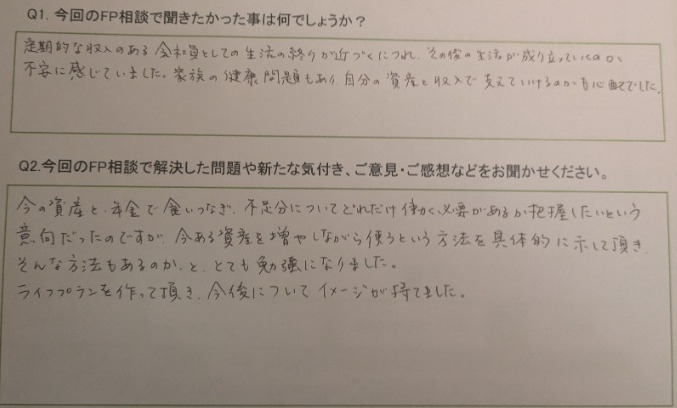 Q1. 今回のFP相談で聞きたかった事は何でしょうか？
定期的な収入のある会社員としての生活の終りが近づくにつれ、その後の生活が成り立っていくのか
不安に感じていました。家族の健康問題もあり、自分の資産と収入で支えていけるのかも心配でした。
Q2.今回のFP相談で解決した問題や新たな気付き、ご意見・ご感想などをお聞かせください。
今の資産と、年金で食いつなぎ、不足分についてどれだけ働く必要があるか把握したいという
意向だったのですが、今ある資産を増やしながら使うという方法を具体的に示して頂き、
そんな方法もあるのか、と、とても勉強になりました。
ライフプランを作って頂き、今後についてイメージが持てました。